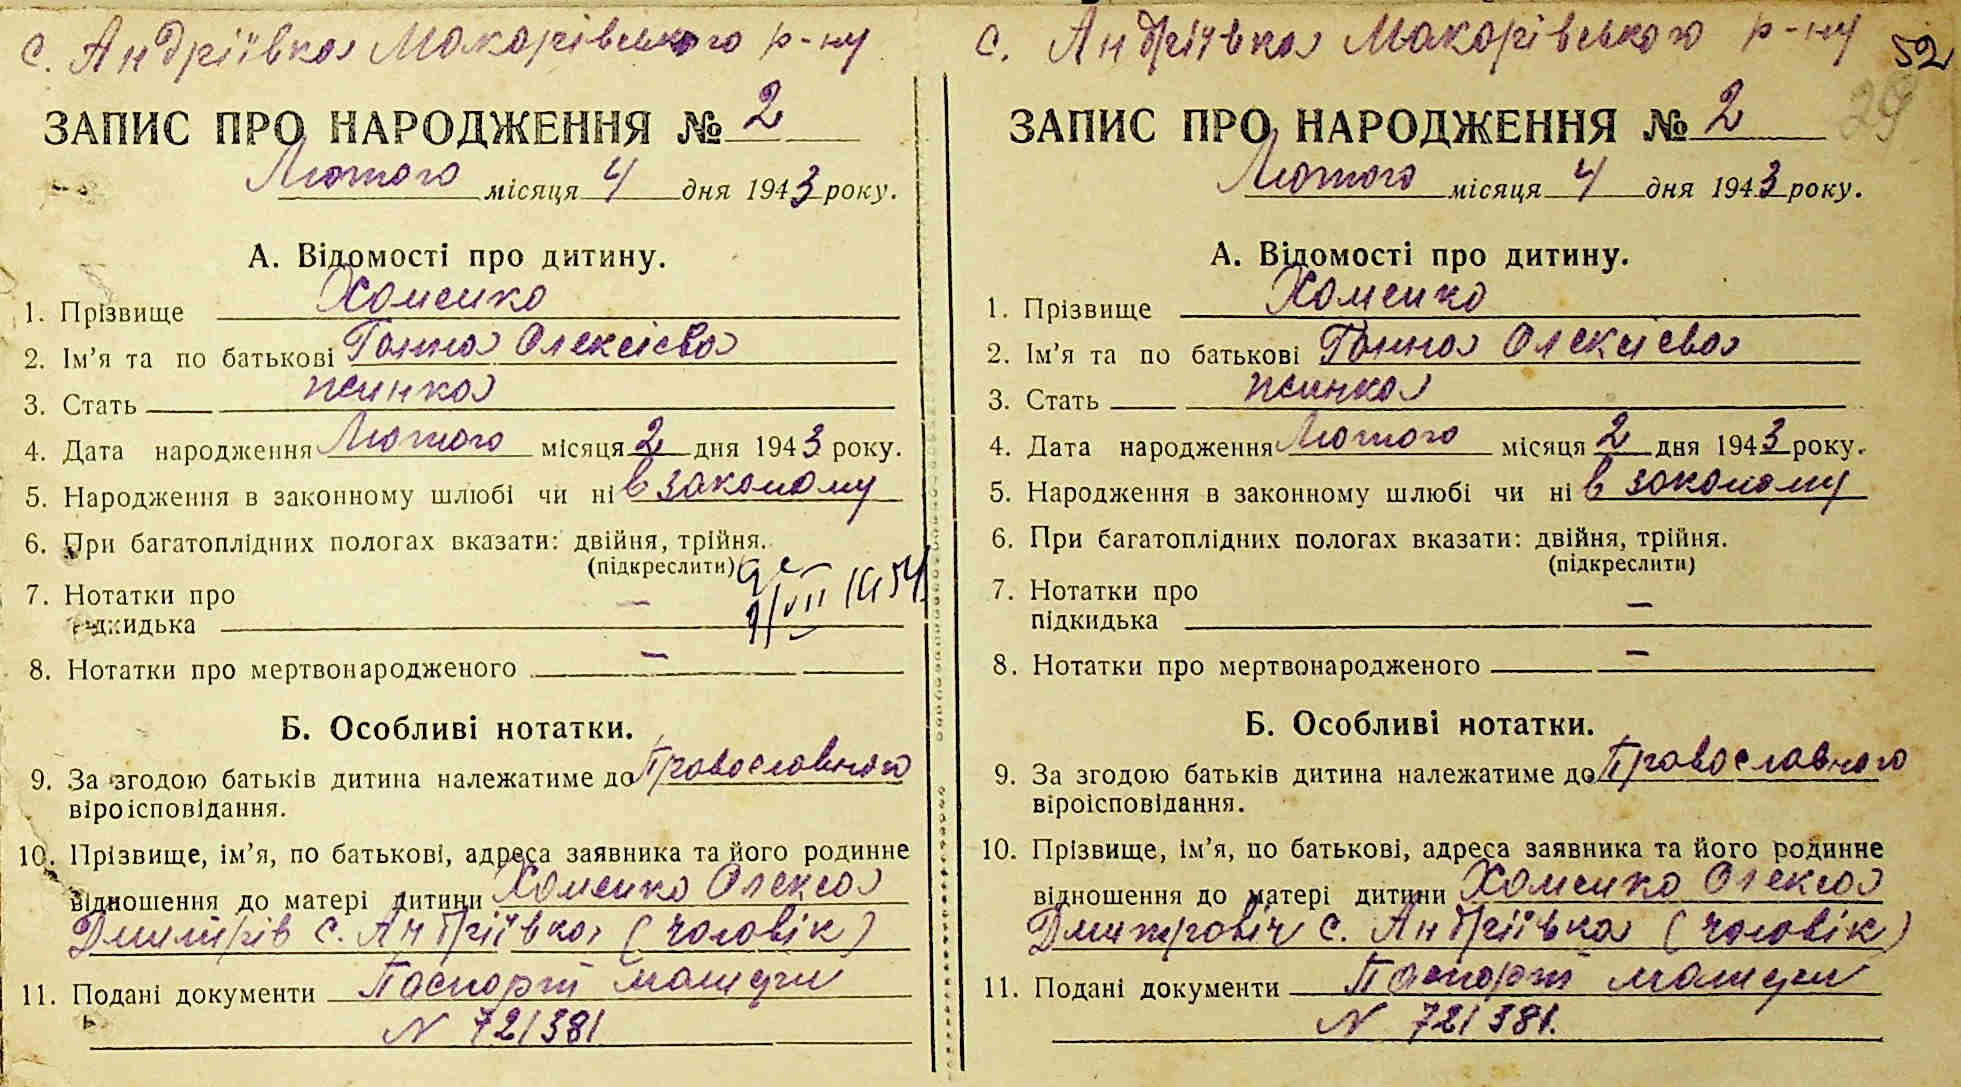 с. Андріївка Макарівського р-ну
ЗАПИС ПРО НАРОДЖЕННЯ № 2
Лютого місяця 4 дня 1943 року.
А. Відомості про дитину.
1. Прізвище Хоменко
2. Ім’я та по батькові Ганна Олексієва
3. Стать жинка
4. Дата народження Лютого місяця 2 дня 1943 року.
5. Народження в законному шлюбі чи ні в законому
6. При багатоплідних пологах вказати: двійня, трійня.
(підкреслити)
7. Нотатки про
підкидька –
8. Нотатки про мертвонародженого –
Б. Особливі нотатки.
9. За згодою батьків дитина належатиме до Православного
віроісповідання.
10. Прізвище, ім’я, по батькові, адреса заявника та його родинне
відношення до матері дитини Хоменко Олекса
Дмитрів с. Андріївка (чоловік)
11. Подані документи Паспорт
N 721381
с. Андріївка Макарівського р-ну 52
29
ЗАПИС ПРО НАРОДЖЕННЯ № 2
Лютого місяця 4 дня 1943 року.
А. Відомості про дитину.
1. Прізвище Хоменко
2. Ім’я та по батькові Ганна Олексієва
3. Стать жинка
4. Дата народження Лютого місяця 2 дня 1943 року.
5. Народження в законному шлюбі чи ні в законому
6. При багатоплідних пологах вказати: двійня, трійня.
(підкреслити)
7. Нотатки про
підкидька –
8. Нотатки про мертвонародженого –
Б. Особливі нотатки.
9. За згодою батьків дитина належатиме до Православного
віроісповідання.
10. Прізвище, ім’я, по батькові, адреса заявника та його родинне
відношення до матері дитини Хоменко Олекса
Дмитрович с. Андріївка (чоловік)
11. Подані документи Паспорт
N 721381.